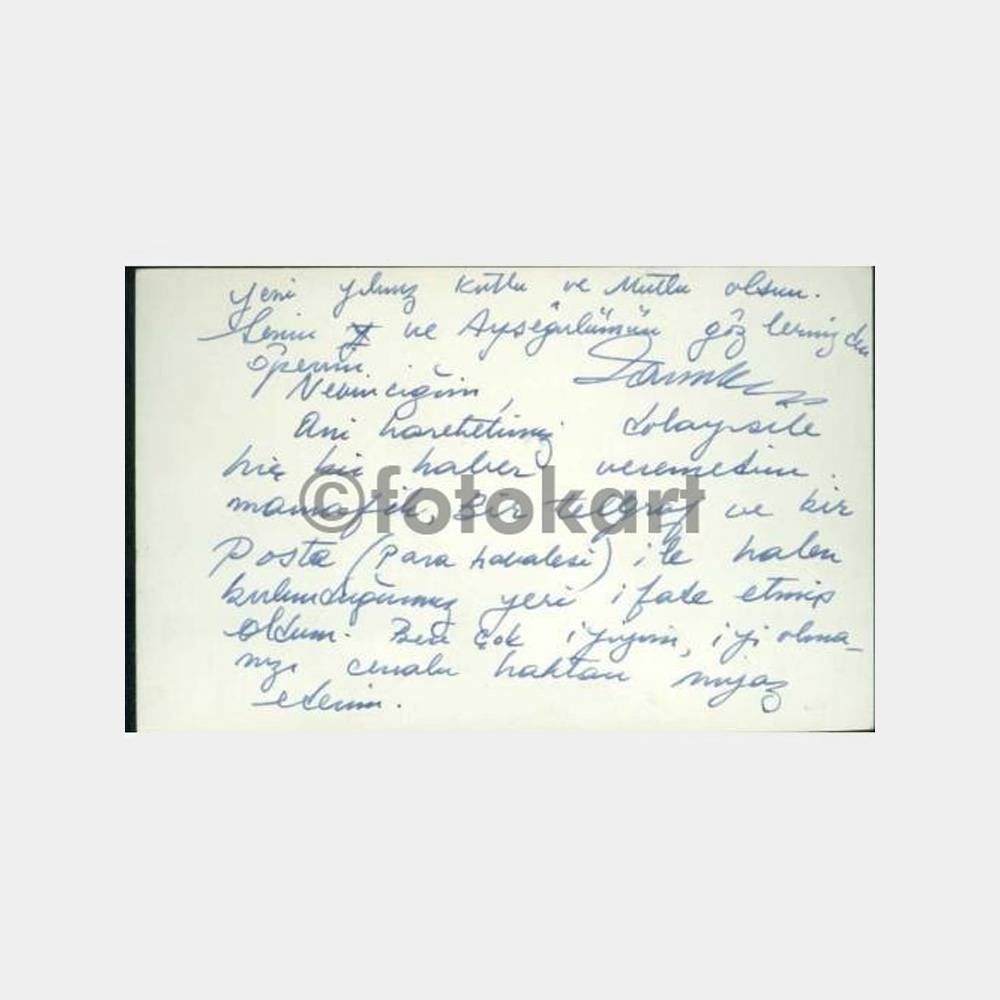 Yeni yılınız kutlu ve Mutlu olsun.
Senin ve Ayşegülümün gözlerinizden
öperim.
Nevinciğim,
Ani hareketimiz dolayısile
hiç bir haber veremedim.
mamafih, Bir telgraf ve bir
Posta (Para havalesi) ile halen
bulunduğumuz yeri ifade etmiş
oldum. Ben çok iyiyim, iyi olma-
nızı cenabı haktan niyaz
ederim.
©fotokart